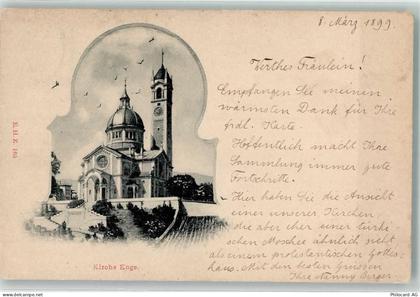 8. März 1899.
Werthes Fräulein!
Empfangen Sie meinen
wärmsten Dank für Ihre
frdl. Karte.
Hoffentlich macht Ihre
Sammlung immer gute
Fortschritte.
Hier haben Sie die Ansicht
einer unserer Kirchen
die aber eher einer türki-
schen Moschee ähnlich sieht
als einem protestantischen Gottes-
haus. Mit den besten Grüssen
Ihre Nanny Berger.
Kirche Enge.
E. H. Z. 105
www.postcard.at
Philocard AG